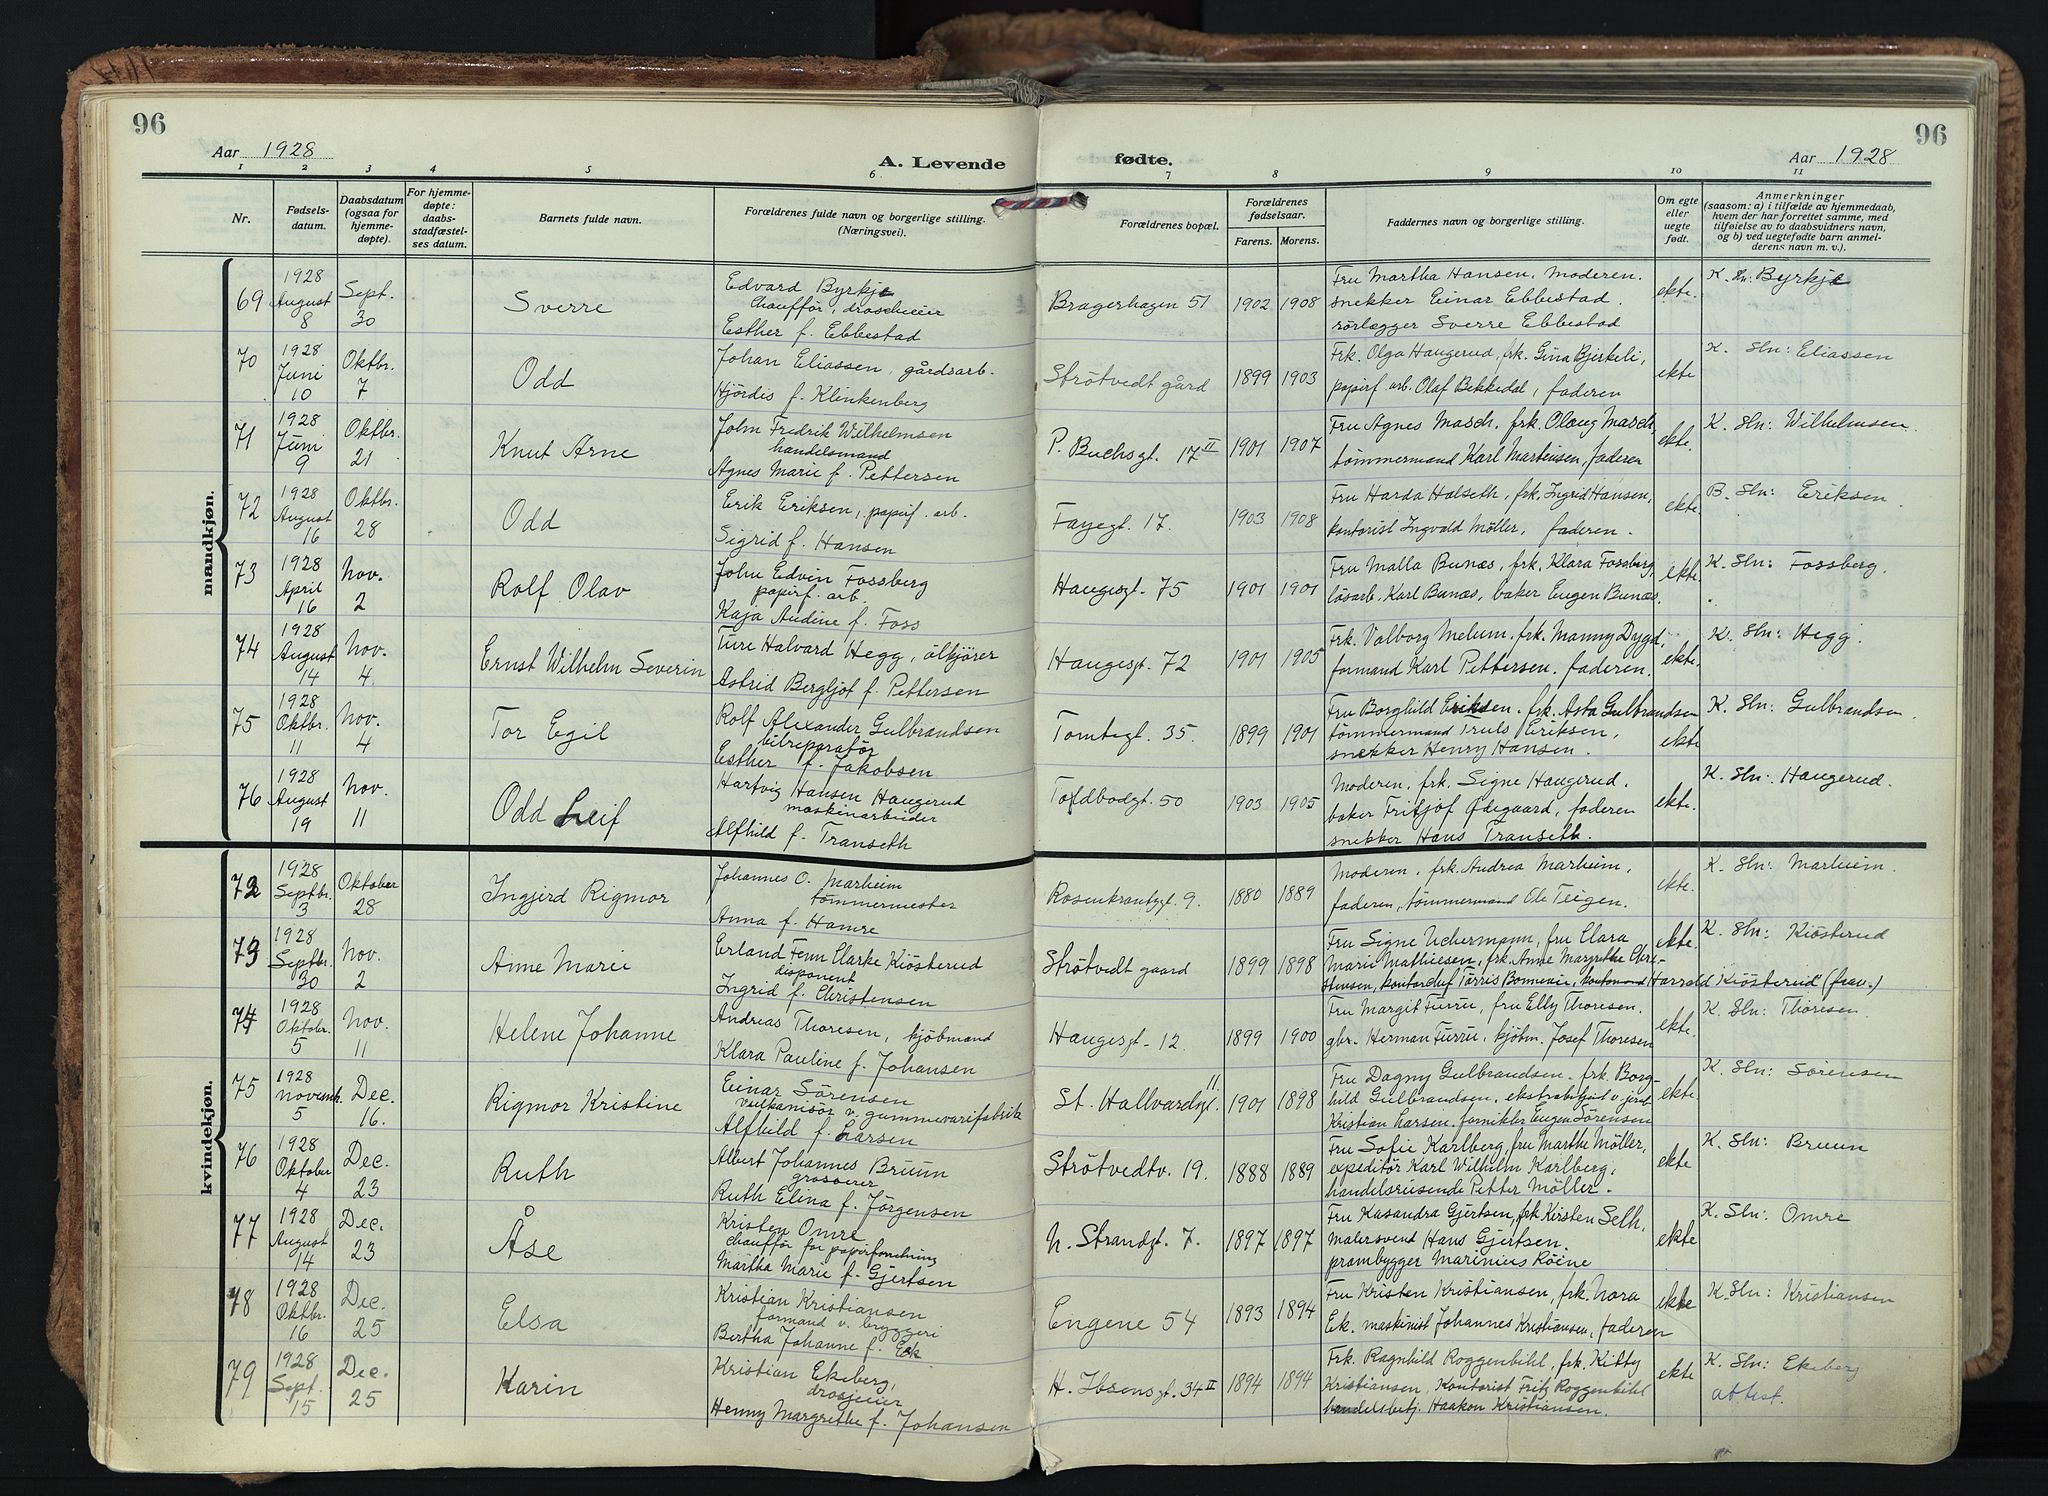 96
Aar 1928
A. Levende
1 2 3 4 5 6
Nr.
Fødsels-
datum.
Daabsdatum
(ogsaa for
hjemme-
døpte).
For hjemme-
døpte:
daabs-
stadfæstel-
ses datum.
Barnets fulde navn.
Forældrenes fulde navn og borgerlige stilling.
(Næringsvei).
mandkjøn.
69
1928
August
8
Sept.
30
Sverre
Edvard Byrkje
Chaufför, droscheeier
Esther f. Ebbestad
70
1928
Juni
10
Oktbr.
7
Odd
Johan Eliassen, gårdsarb.
Hjördis f. Klinkenberg
71
1928
Juni
9
Oktbr.
21
Knut Arne
John Fredrik Wilhelmsen
handelsmand
Agnes Marie f. Pettersen
72
1928
August
16
Oktbr.
28
Odd
Erik Eriksen, papirf. arb.
Sigrid f. Hansen
73
1928
April
16
Nov.
2
Rolf Olav
John Edvin Fossberg
papirf. arb.
Kaja Audine f. Foss
74
1928
August
14
Nov.
4
Ernst Wilhelm Severin
Ture Halvard Hegg, ölkjörer
Astrid Bergljot f. Pettersen
75
1928
Oktbr.
11
Nov.
4
Tor Egil
Rolf Alexander Gulbrandsen
bilreparatör
Esther f. Jakobsen
76
1928
August
19
Nov.
11
Odd Leif
Hartvig Hansen Haugerud
maskinarbeider
Alfhild f. Transeth
kvindekjøn.
72
1928
Septbr.
3
Oktober
28
Ingjerd Rigmor
Johannes O. Marheim
tömmermester
Anna f. Hamre
73
1928
Septbr.
30
Nov.
2
Anne Marie
Erland Fenn Clarke Kiösterud
disponent
Ingrid f. Christensen
74
1928
Oktobr.
5
Nov.
11
Helene Johanne
Andreas Thoresen, kjöbmand
Klara Pauline f. Johansen
75
1928
Novemb.
5
Dec.
16.
Rigmor Kristine
Einar Sörensen
vulkanisör v. gummivarefabrik
Alfhild f. Larsen
76
1928
Oktober
4
Dec.
23
Ruth
Albert Johannes Bruun
grosserer
Ruth Elina f. Jörgensen
77
1928
August
14
Dec.
23
Åse
Kristen Omre
chaufför for papirforretning
Martha Marie f. Gjertsen
78
1928
Oktbr.
16
Dec.
25
Elsa
Kristian Kristiansen
formand v. bryggeri
Bertha Johanne f. Ek
79
1928
Sept.
15
Dec.
25
Karin
Kristian Ekeberg,
drosjeeier
Henny Margrethe f. Johansen
96
fødte.
Aar 1928
7 8 9 10 11
Forældrenes bopæl.
Forældrenes
fødselsaar.
Farens. Morens.
Faddernes navn og borgerlige stilling.
Om egte
eller
uegte
født.
Anmerkninger
(saasom: a) i tilfælde av hjemmedaab,
hvem der har forrettet samme, med
tilføielse av to daabsvidners navn,
og b) ved uegtefødte barn anmel-
derens navn m. v.).
Bragerhagen 51 1902 1908
Fru Martha Hansen, Moderen.
snekker Einar Ebbestad.
rörlægger Sverre Ebbestad
ekte.
K. Sln: Byrkje
Strötvedt gård 1899 1903
Frk. Olga Haugerud, frk. Gina Bjerkeli,
papirf. arb. Olaf Bekkedal, faderen
ekte
K. Sln: Eliassen
P. Buchsgt. 17 II 1901 1907
Fru Agnes Masch, frk. Olaug Masch
tömmermand Karl Martinsen, faderen
ekte
K. Sln: Wilhelmsen.
Fayegt. 17. 1903 1908
Fru Harda Halseth, frk. Ingrid Hansen,
kontorist Ingvald Möller, faderen.
ekte.
B. Sln: Eriksen
Haugesgt. 75 1901 1901
Fru Malla Bunæs, frk. Klara Fossberg,
lösarb. Karl Bunæs, baker Eugen Bunæs.
ekte.
K. Sln: Fossberg.
Haugesgt. 72 1901 1905
Frk. Valborg Melum, frk. Manny Dygd,
formand Karl Pettersen. faderen.
ekte.
K. Sln: Hegg.
Tomtegt. 35. 1899 1901
Fru Borghild Eriksen. frk. Asta Gulbrandsen
tömmermand Truls Eriksen,
snekker Henry Hansen.
ekte
K. Sln: Gulbrandsen.
Toldbodgt. 50 1903 1905
Moderen, frk. Signe Haugerud.
baker Fritjof Ödegaard, faderen
snekker Hans Transeth.
ekte.
K. Sln: Haugerud.
Rosenkrantzgt. 9. 1880 1889
Moderen, frk. Andrea Marheim,
faderen, tömmermand Ole Teigen.
ekte.
K. Sln: Marheim.
Strötvedt gaard 1899 1898
Fru Signe Uchermann, fru Clara
Marie Mathiesen, frk. Anne Margrethe Chri-
stensen, kontorchef Törris Bonnevie, Harrald Kiösterud (frav.)
ekte.
K. Sln: Kiösterud
Haugesgt. 12. 1899 1900
Fru Margit Furru, fru Elly Thoresen.
gbr. Herman Furru, kjöbm. Josef Thoresen
ekte.
K. Sln: Thoresen.
St. Hallvardsgt. 11. 1901 1898
Fru Dagny Gulbrandsen. frk. Borg-
hild Gulbrandsen, ekstrabetjent v. jernb.
Kristian Larsen. fornikler Eugen Sörensen
ekte.
K. Sln: Sörensen
Strötvedtv. 19. 1888 1889
Fru Sofie Karlberg, fru Marthe Möller,
expeditör Karl Wilhelm Karlberg,
handelsreisende Petter Möller.
ekte
K. Sln: Bruun
N. Strandgt. 7. 1897 1897
Fru Kasandra Gjertsen, frk. Kirsten Seth,
malersvend Hans Gjertsen.
prambygger Marinius Röine
ekte
K. Sln: Omre
Engene 54 1893 1894
Fru Kristen Kristiansen, frk. Nora
Ek. maskinist Johannes Kristiansen, faderen
ekte
K. Sln: Kristiansen
H. Ibsensgt. 34 II 1894 1894
Frk. Ragnhild Roggenbihl, frk. Kitty
Kristiansen, Kontorist Fritz Roggenbihl
handelsbetj. Haakon Kristiansen.
ekte
K. Sln: Ekeberg
attest.